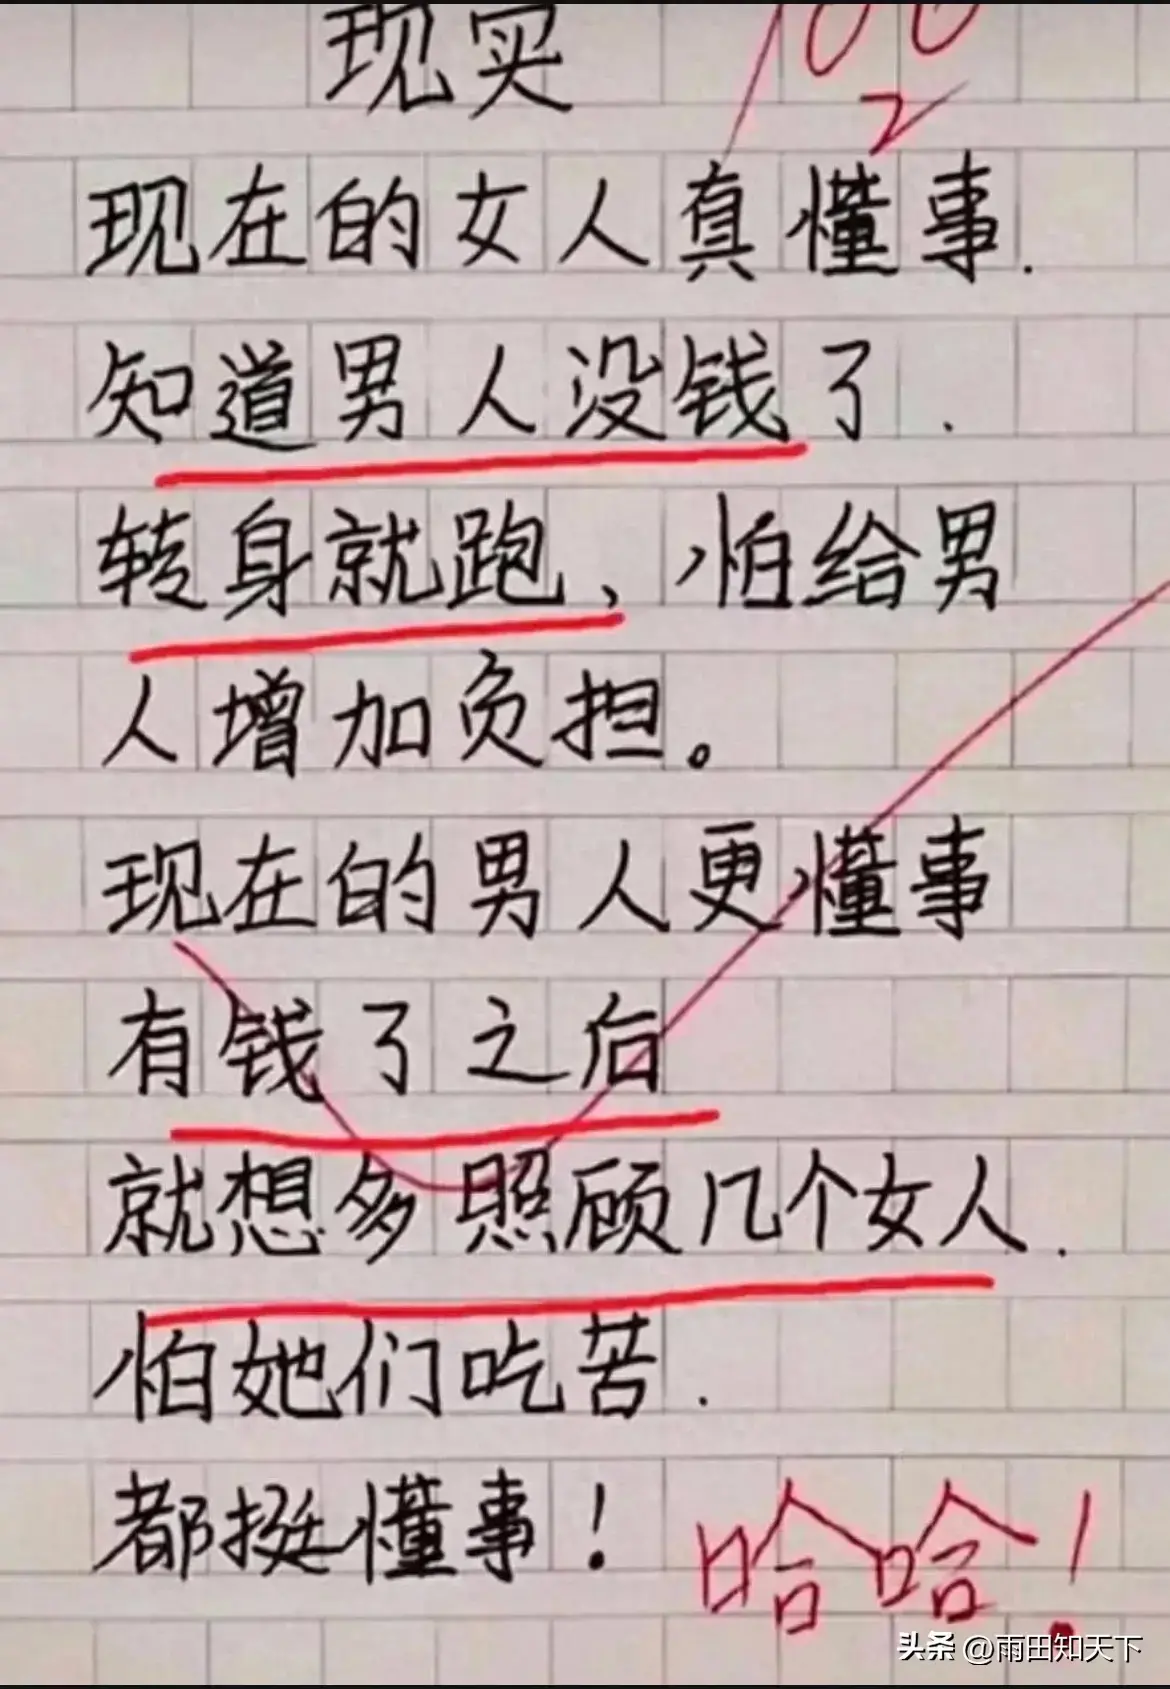 现实 100
2
现在的女人真懂事.
知道男人没钱了.
转身就跑、怕给男
人增加负担。
现在的男人更懂事
有钱了之后
就想多照顾几个女人.
怕她们吃苦.
都挺懂事！
哈哈！
头条 @雨田知天下